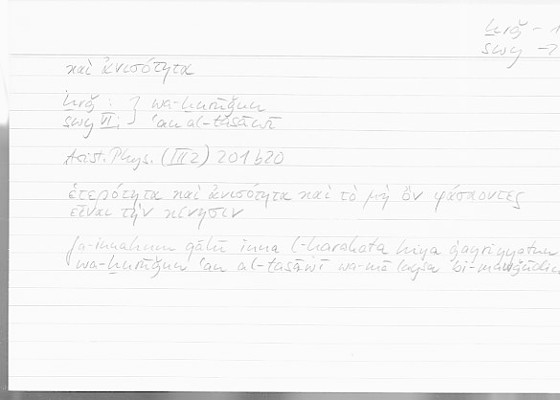 ḫrǧ – 1
swy →
καὶ ἀνισότητα
ḫrǧ : } wa-ḫurūǧun
swy VI: } ʿan al-tasāwī
Arist. Phys. (III 2) 201 b20
ἑτερότητα καὶ ἀνισότητα καὶ τὸ μὴ ὂν φάσκοντες
εἶναι τὴν κίνησιν
fa-innahum qālū inna l-ḥarakata hiya ġayriyyatun
wa-ḫurūǧun ʿan al-tasāwī wa-mā laysa bi-mawǧūdin